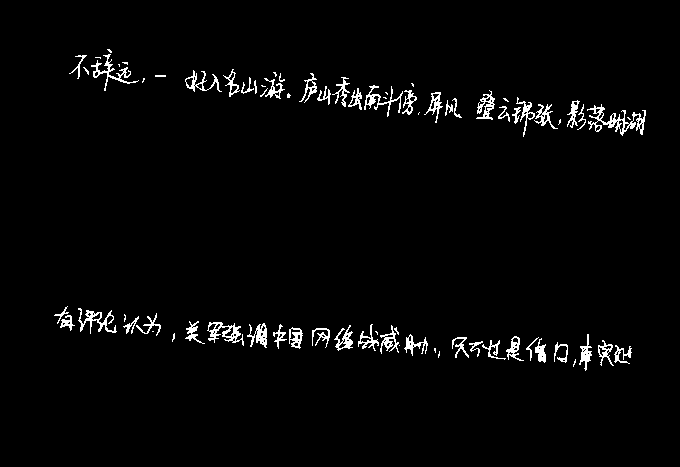 不辞远，一 生入名山游.庐山秀出南斗傍.屏风 叠云锦张,影落明湖
有评论认为,美军强调中国网络战威胁,只不过是借口,事实上